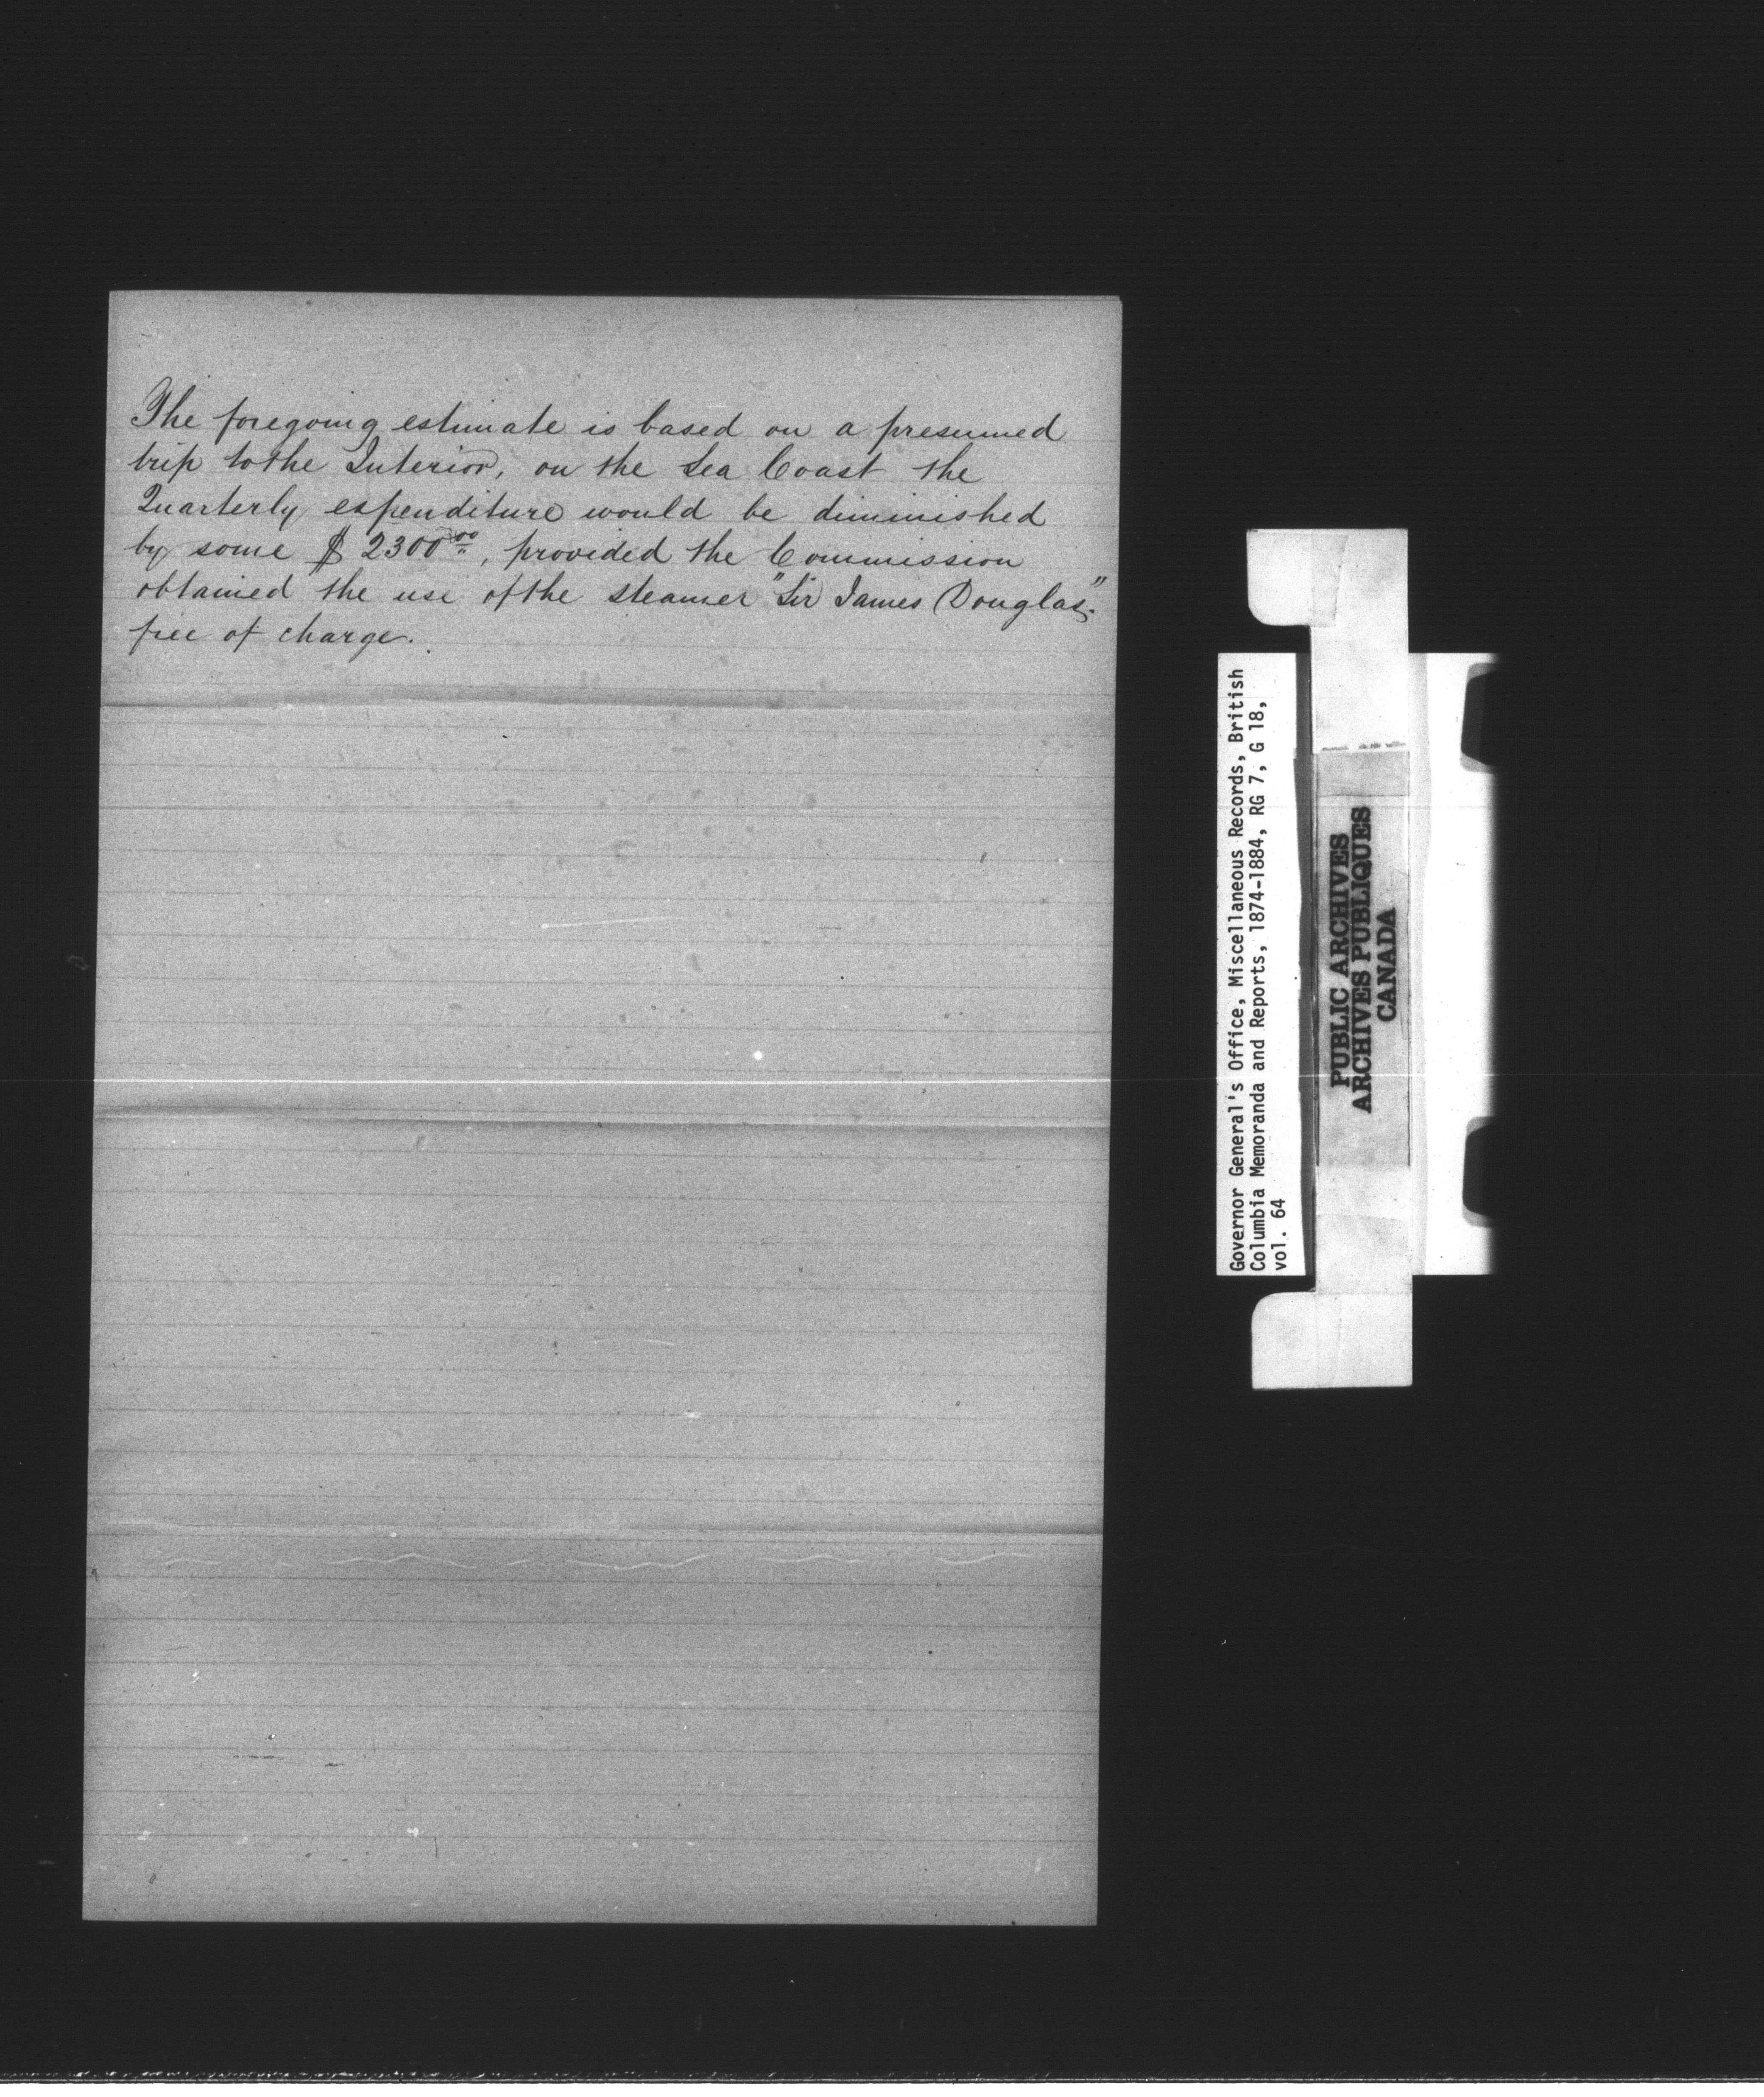 The foregoing estimate is based on a presumed
trip to the Interior, on the Sea Coast the
Quarterly expenditure would be diminished
by some $ 2300.00, provided the Commission
obtained the use of the steamer "Sir James Douglas"
free of charge.
Governor General's Office, Miscellaneous Records, British
Columbia Memoranda and Reports, 1874-1884, RG 7, G 18,
vol. 64
PUBLIC ARCHIVES
ARCHIVES PUBLIQUES
CANADA